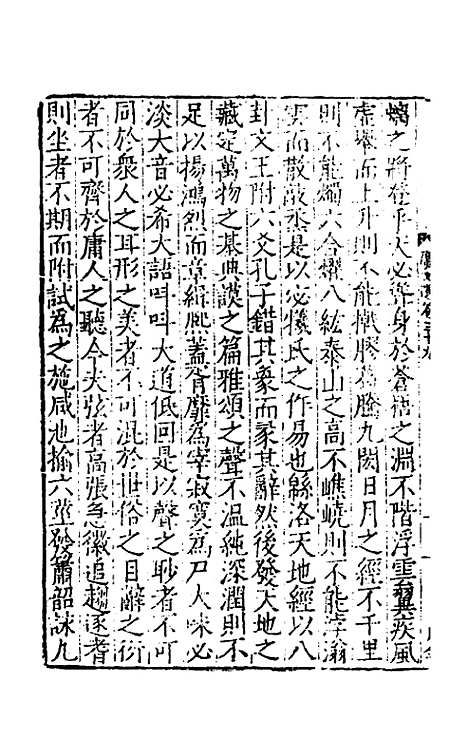 螭之將登乎天必聳身於蒼梧之淵不階浮雲翼疾風
虛舉而上升則不能撠膠葛騰九閎日月之經不千里
則不能燭六合燿八紘泰山之高不嶕嶢則不能浡滃
雲而散歊烝是以宓犧氏之作易也緜洛天地經以八
卦文王附六爻孔子錯其象而彖其辭然後發天地之
藏定萬物之基典謨之篇雅頌之聲不溫純深潤則不
足以揚鴻烈而章緝熙蓋胥靡為宰寂寞為尸大味必
淡大音必希大語叫叫大道低回是以聲之眇者不可
同於衆人之耳形之美者不可混於世俗之目辭之衍
者不可齊於庸人之聽今夫弦者高張急徽追趨逐耆
則坐者不期而附試為之施咸池揄六莖發簫韶詠九